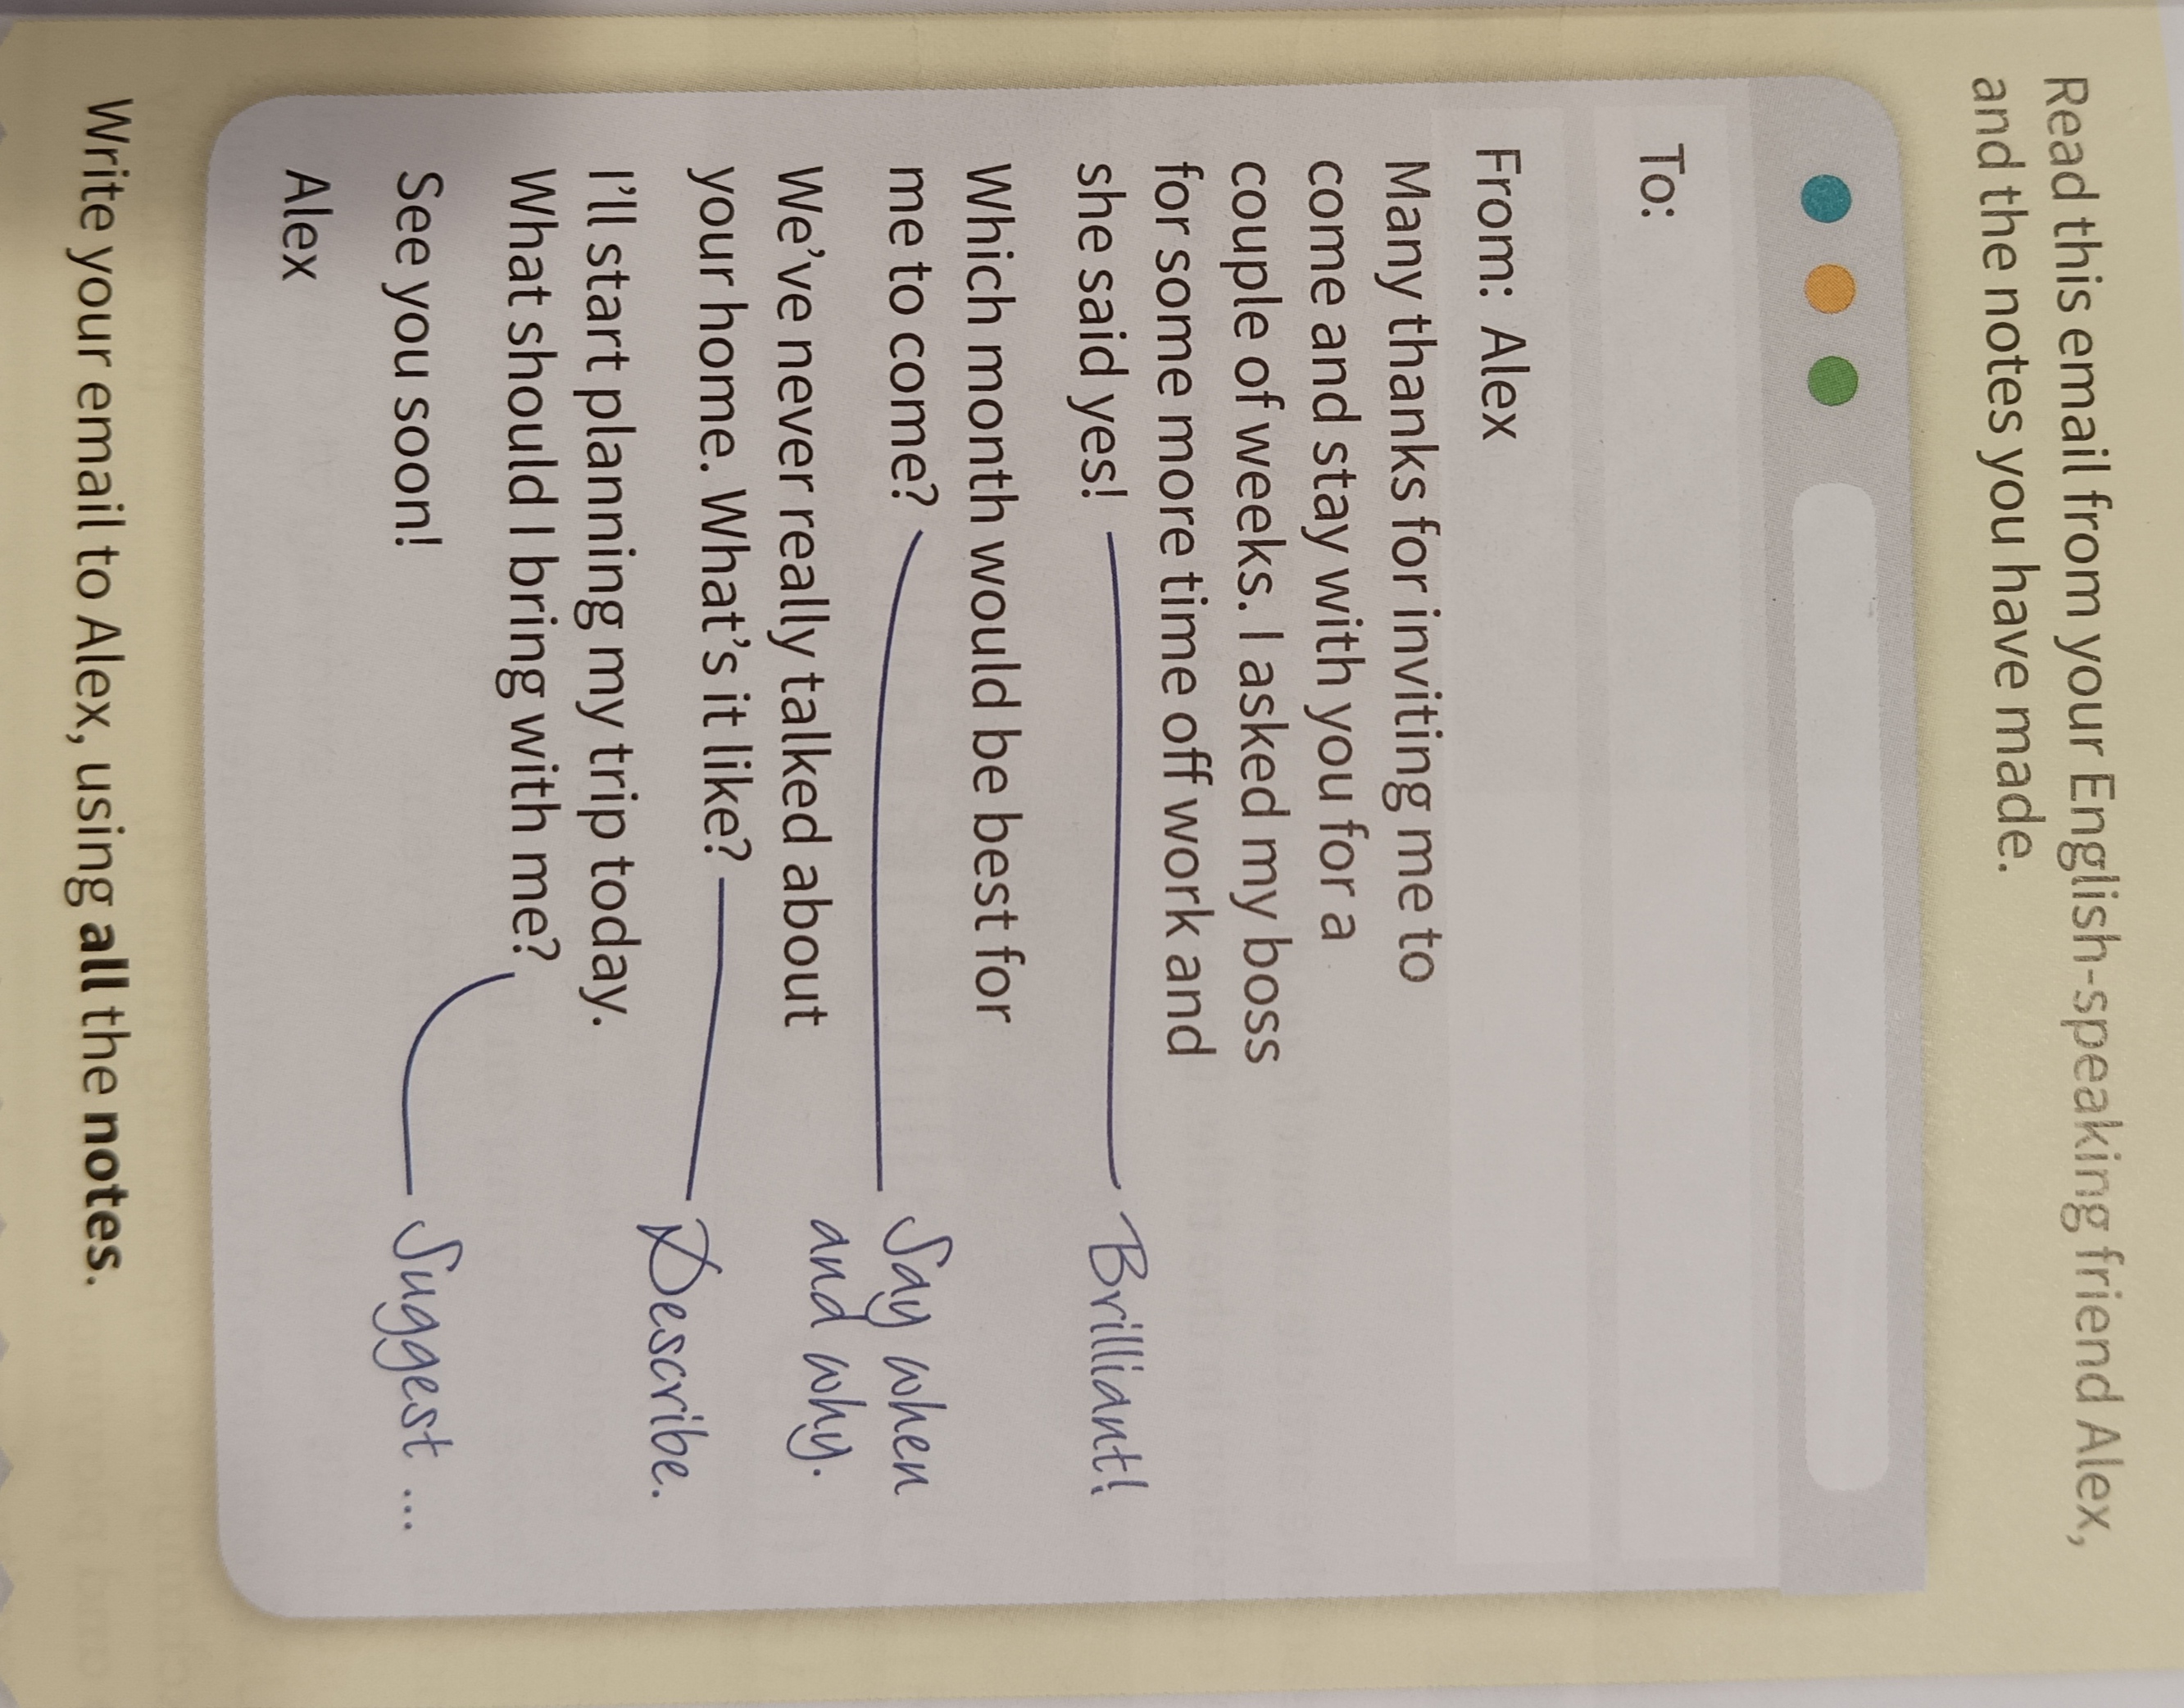 Read this email from your English-speaking friend Alex,
and the notes you have made.
To:
From: Alex
Many thanks for inviting me to
come and stay with you for a
couple of weeks. I asked my boss
for some more time off work and
she said yes!
Brilliant!
Which month would be best for
me to come?
Say when
and why.
We've never really talked about
your home. What's it like?
Describe.
I'll start planning my trip today.
What should I bring with me?
Suggest ...
See you soon!
Alex
Write your email to Alex, using all the notes.